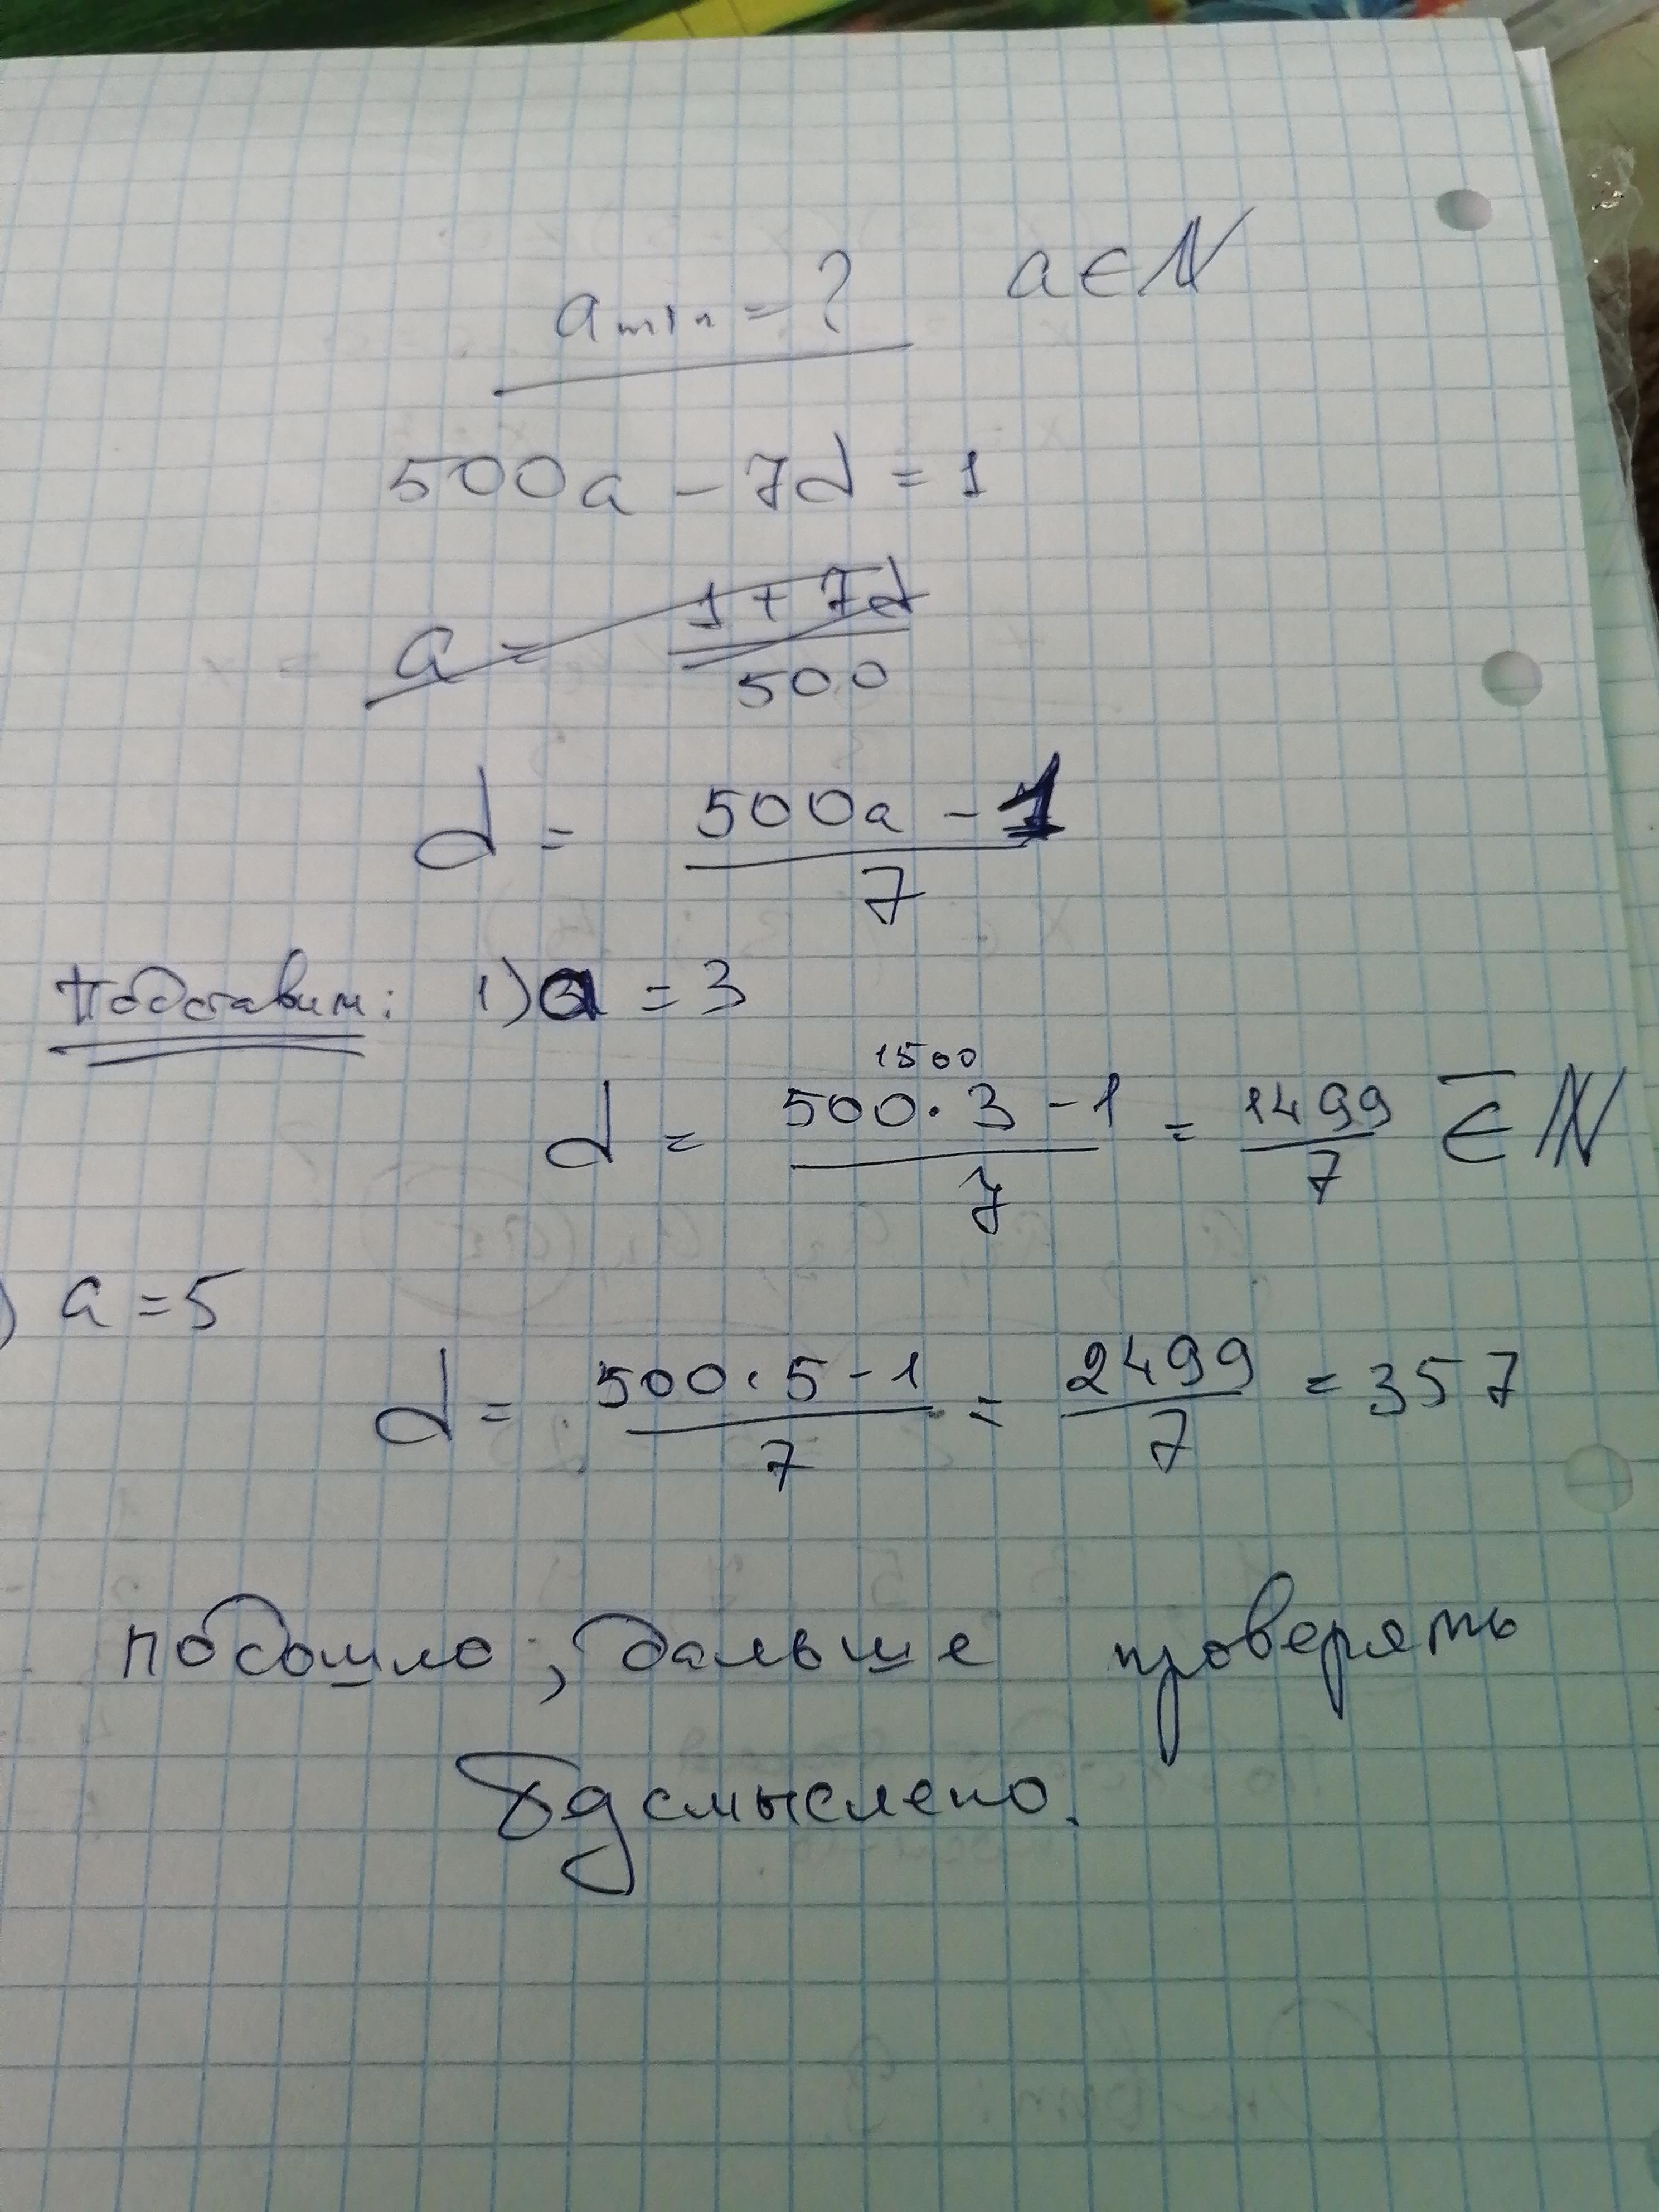 a min = ? a ∈ ℕ
500a - 7d = 1
a = (1 + 7d)/500
d = (500a - 1)/7
Подставим: 1) a = 3
1500
d = (500·3 - 1)/7 = 1499/7 ∈̅ ℕ
) a = 5
d = (500·5 - 1)/7 = 2499/7 = 357
подошло, дальше проверять